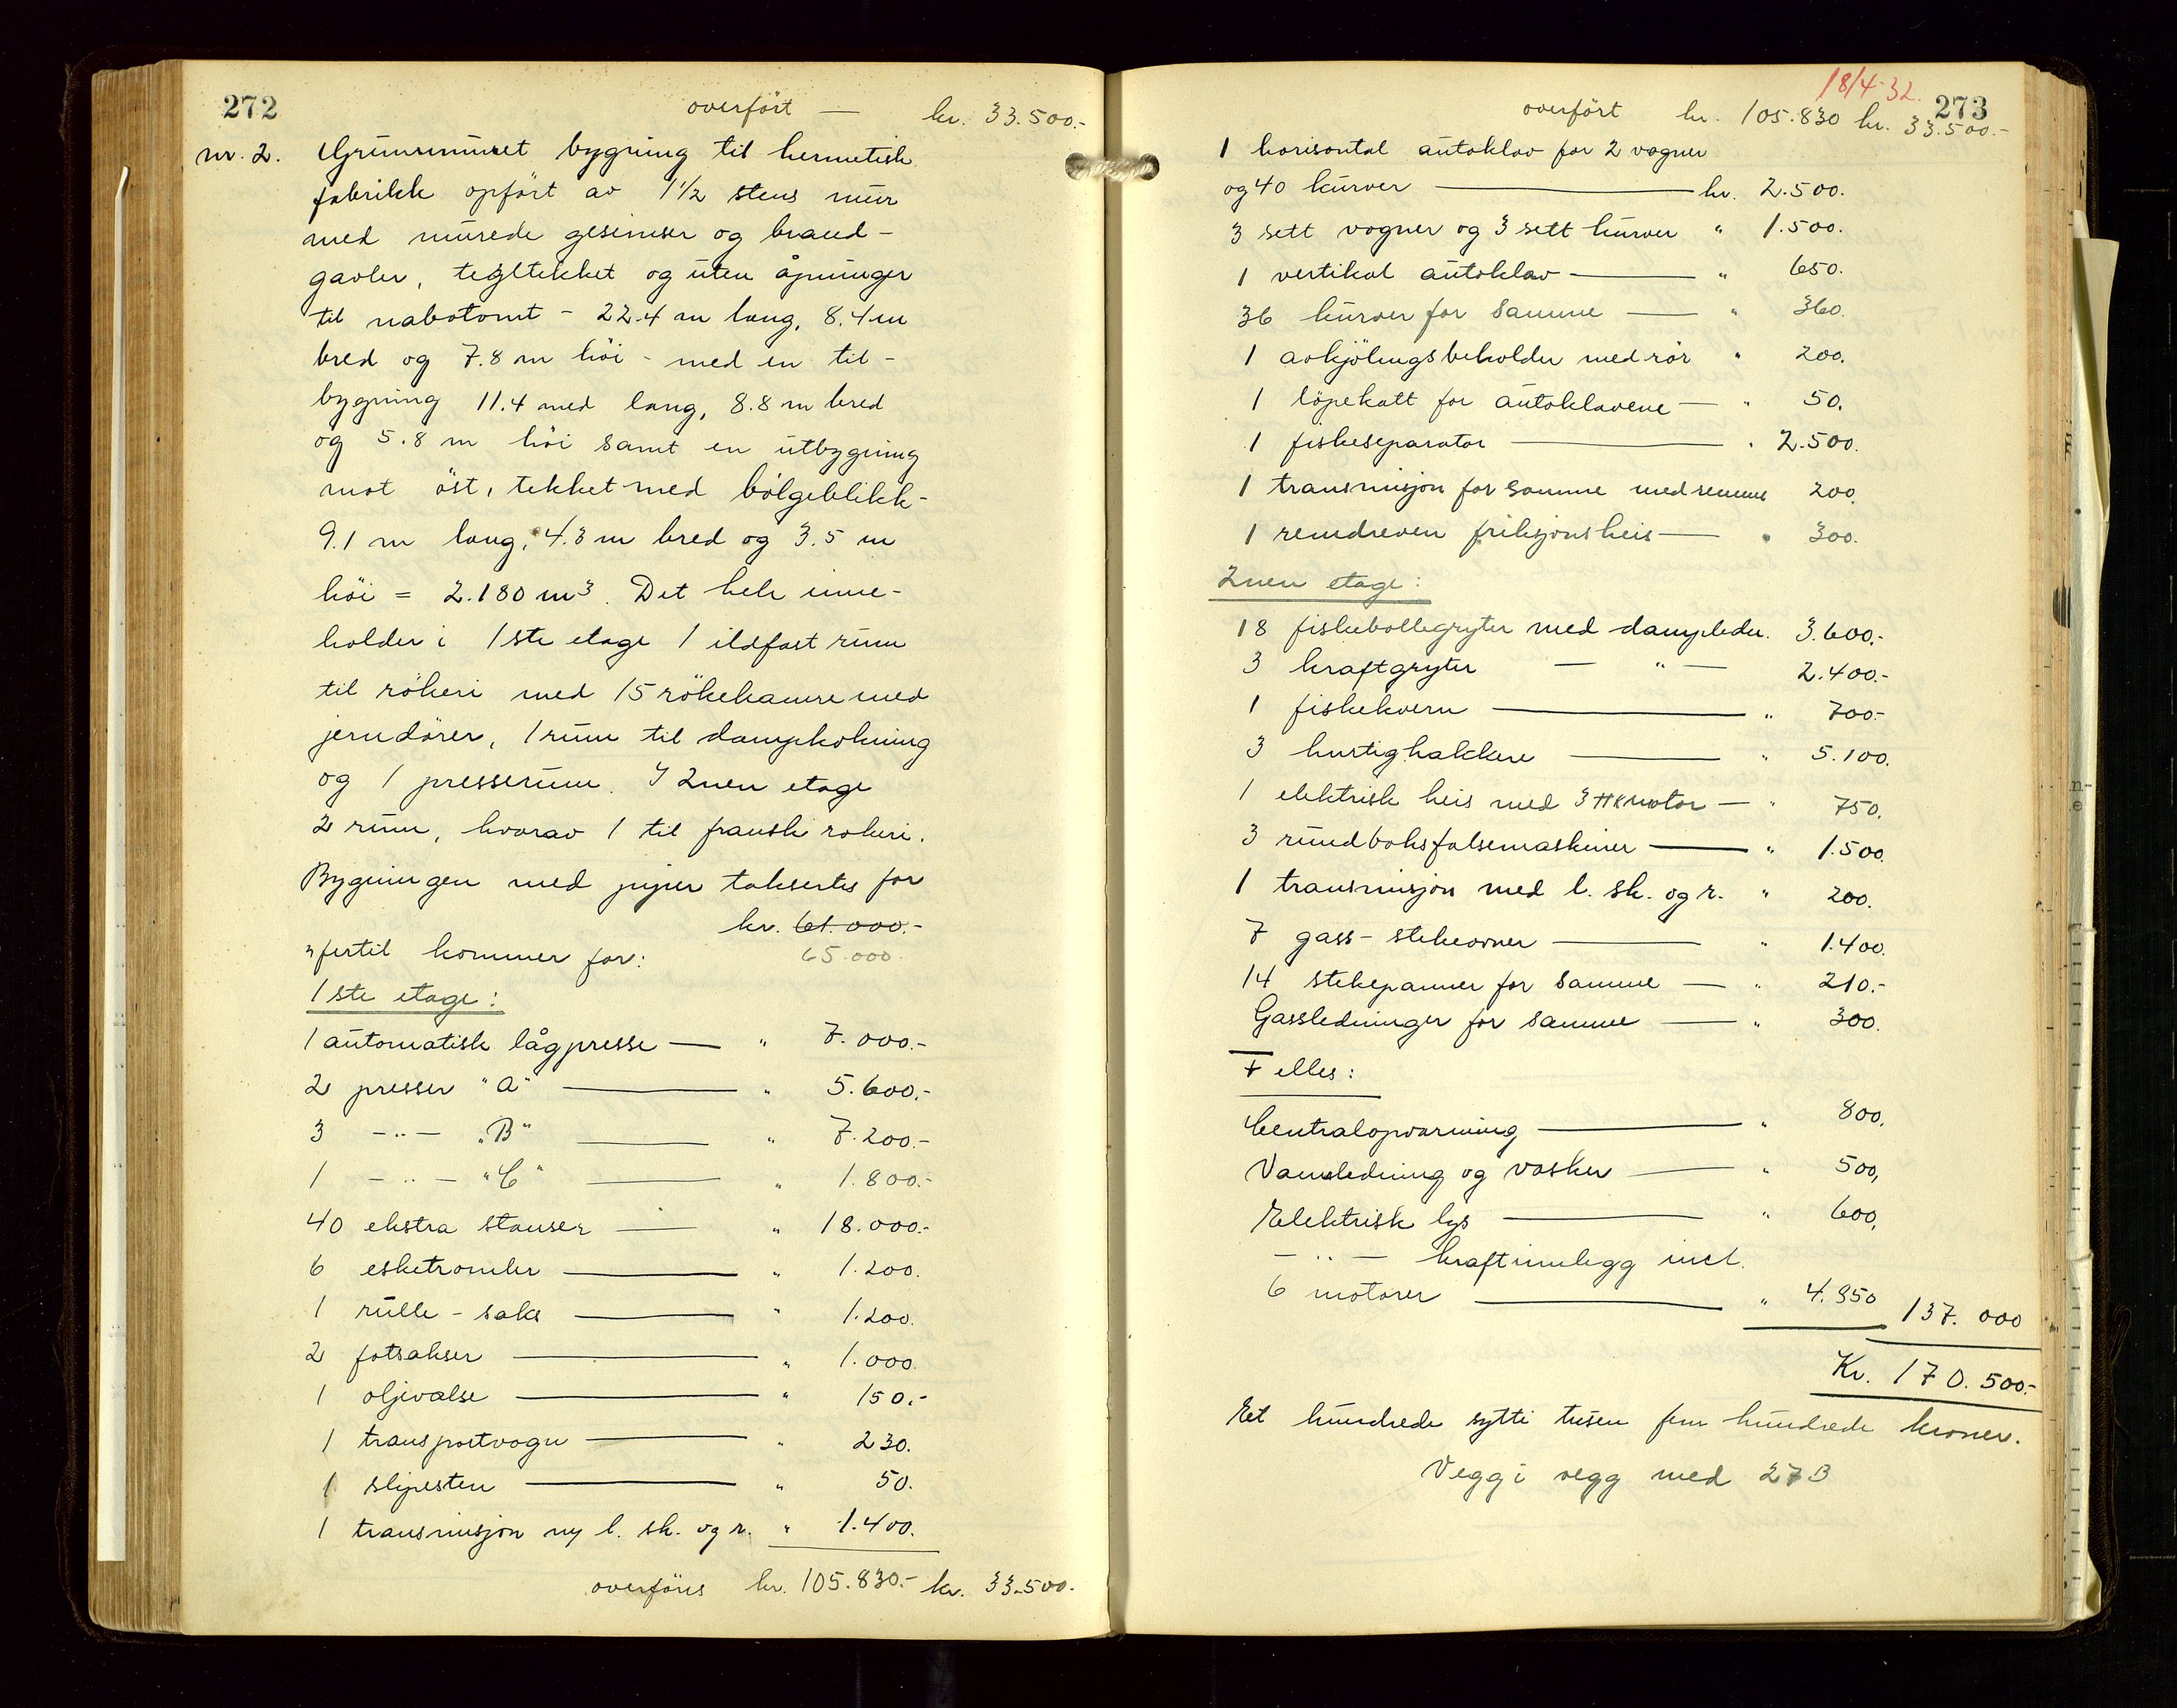 272
overfört — kr. 33.500.-
nr. 2. Grunnmuret bygning til hermetisk
fabrikk opfört av 1 1/2 stens mur
med murede gesimser og brand-
gavler, tegltekket og uten åpninger
til nabotomt - 22.4 m lang, 8.4 m
bred og 7.8 m höi - med en til-
bygning 11.4 med lang, 8.8 m bred
og 5.8 m höi samt en utbygning
mot öst, tekket med bölgeblikk-
9.1 m lang, 4.3 m bred og 3.5 m
höi = 2.180 m3. Det hele inne-
holder i 1ste etage 1 ildfast rum
til rökeri med 15 rökekamre med
jerndörer, 1 rum til dampkokning
og 1 presserum. I 2nen etage
2 rum, hvorav 1 til fransk rökeri.
Bygningen med piper takseres for
kr. 61.000.-
hertil kommer for: 65.000.
1ste etage:
1 automatisk lågpresse — " 7.000.-
2 presser "A" — " 5.600.-
3 -"- "B" — " 7.200.-
1 -"- "C" — " 1.800.-
40 ekstra stanser — " 18.000.-
6 esketromler — " 1.200.
1 rulle-saks — " 1.200.
2 fotsakser — " 1.000.
1 oljevalse — " 150.-
1 transportvogn — " 230.
1 slipesten — " 50.
1 transmisjon ny l. sk. og r. " 1.400.
overföris kr. 105.830.- kr. 33.500.
18/4-32.
273
overfört kr. 105.830 kr. 33.500.-
1 horisontal autoklav for 2 vogner
og 40 kurver — kr. 2.500.
3 sett vogner og 3 sett kurver " 1.500.
1 vertikal autoklav — " 650.
36 kurver for samme — " 360.
1 avkjölingsbeholder med rör " 200.
1 löpekatt for autoklavene — " 50.
1 fiskeseparator — " 2.500.
1 transmisjon for samme med remme 200.
1 remdreven friksjonsheis — " 300.
2nen etage:
18 fiskebollegryter med dampleder. 3.600.-
3 kraftgryter — " — 2.400.-
1 fiskekvern — " 700.-
3 hurtighakkere — " 5.100.
1 elektrisk heis med 3 HK motor — " 750.
3 rundboksfalsemaskiner — " 1.500.
1 transmisjon med l. sk. og r. " 200.
7 gass-stekeovner — " 1.400.
14 stekepanner for samme — " 210.-
Gassledninger for samme — " 300.
Felles:
Centralopvarming — " 800.
Vannledning og vasker — " 500,
Elektrisk lys — " 600,
— " — kraftinnlegg incl.
6 motorer — " 4.850 137.000
Kr. 170.500.-
Et hundrede sytti tusen fem hundrede kroner.
Vegg i vegg med 27B